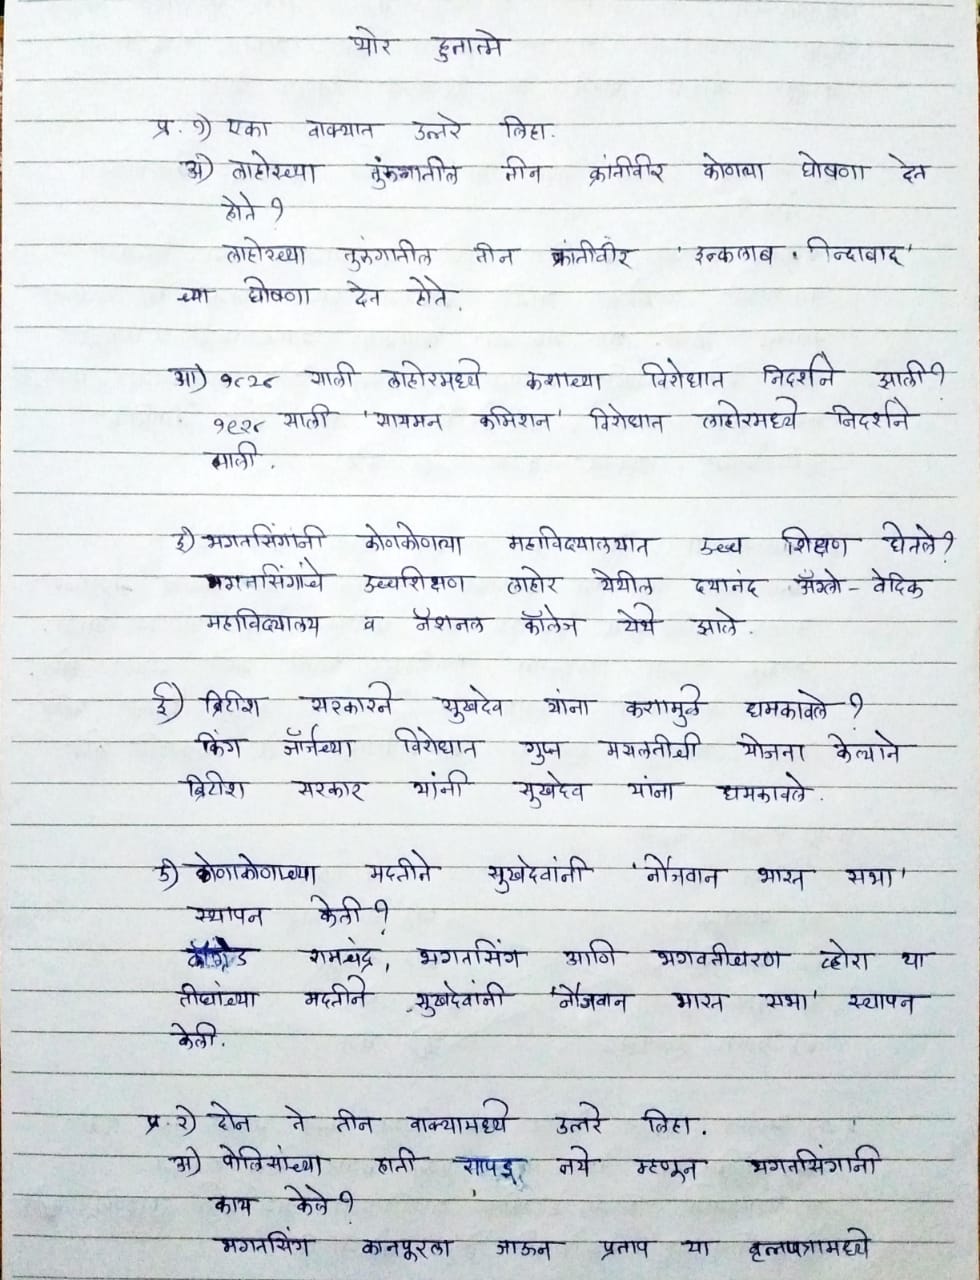 थोर हुतात्मे
प्र. १) एका वाक्यात उत्तरे लिहा.
अ) लाहोरच्या तुरुंगातील तीन क्रांतीवीर कोणत्या घोषणा देत
होते ?
लाहोरच्या तुरुंगातील तीन क्रांतीवीर 'इन्कलाब जिन्दाबाद'
च्या घोषणा देत होते.
आ) १९२८ साली लाहोरमध्ये कशाच्या विरोधात निदर्शने झाली?
१९२८ साली 'सायमन कमिशन' विरोधात लाहोरमध्ये निदर्शने
झाली.
इ) भगतसिंगांनी कोणकोणत्या महाविद्यालयात उच्च शिक्षण घेतले?
भगतसिंगांचे उच्चशिक्षण लाहोर येथील दयानंद अँग्लो - वेदिक
महाविद्यालय व नॅशनल कॉलेज येथे झाले.
ई) ब्रिटीश सरकारने सुखदेव यांना कशामुळे धमकावले ?
किंग जॉर्जच्या विरोधात गुप्त मसलतीची योजना केल्याने
ब्रिटीश सरकार यांनी सुखदेव यांना धमकावले.
उ) कोणाकोणाच्या मदतीने सुखदेवांनी 'नौजवान भारत सभा'
स्थापन केली ?
कॉम्रेड रामचंद्र, भगतसिंग आणि भगवतीचरण व्होरा या
तीघांच्या मदतीने सुखदेवांनी 'नौजवान भारत सभा' स्थापन
केली.
प्र. २) दोन ते तीन वाक्यामध्ये उत्तरे लिहा.
अ) पोलिसांच्या हाती सापडू नये म्हणून भगतसिंगांनी
काय केले ?
भगतसिंग कानपूरला जाऊन प्रताप या वृत्तपत्रामध्ये